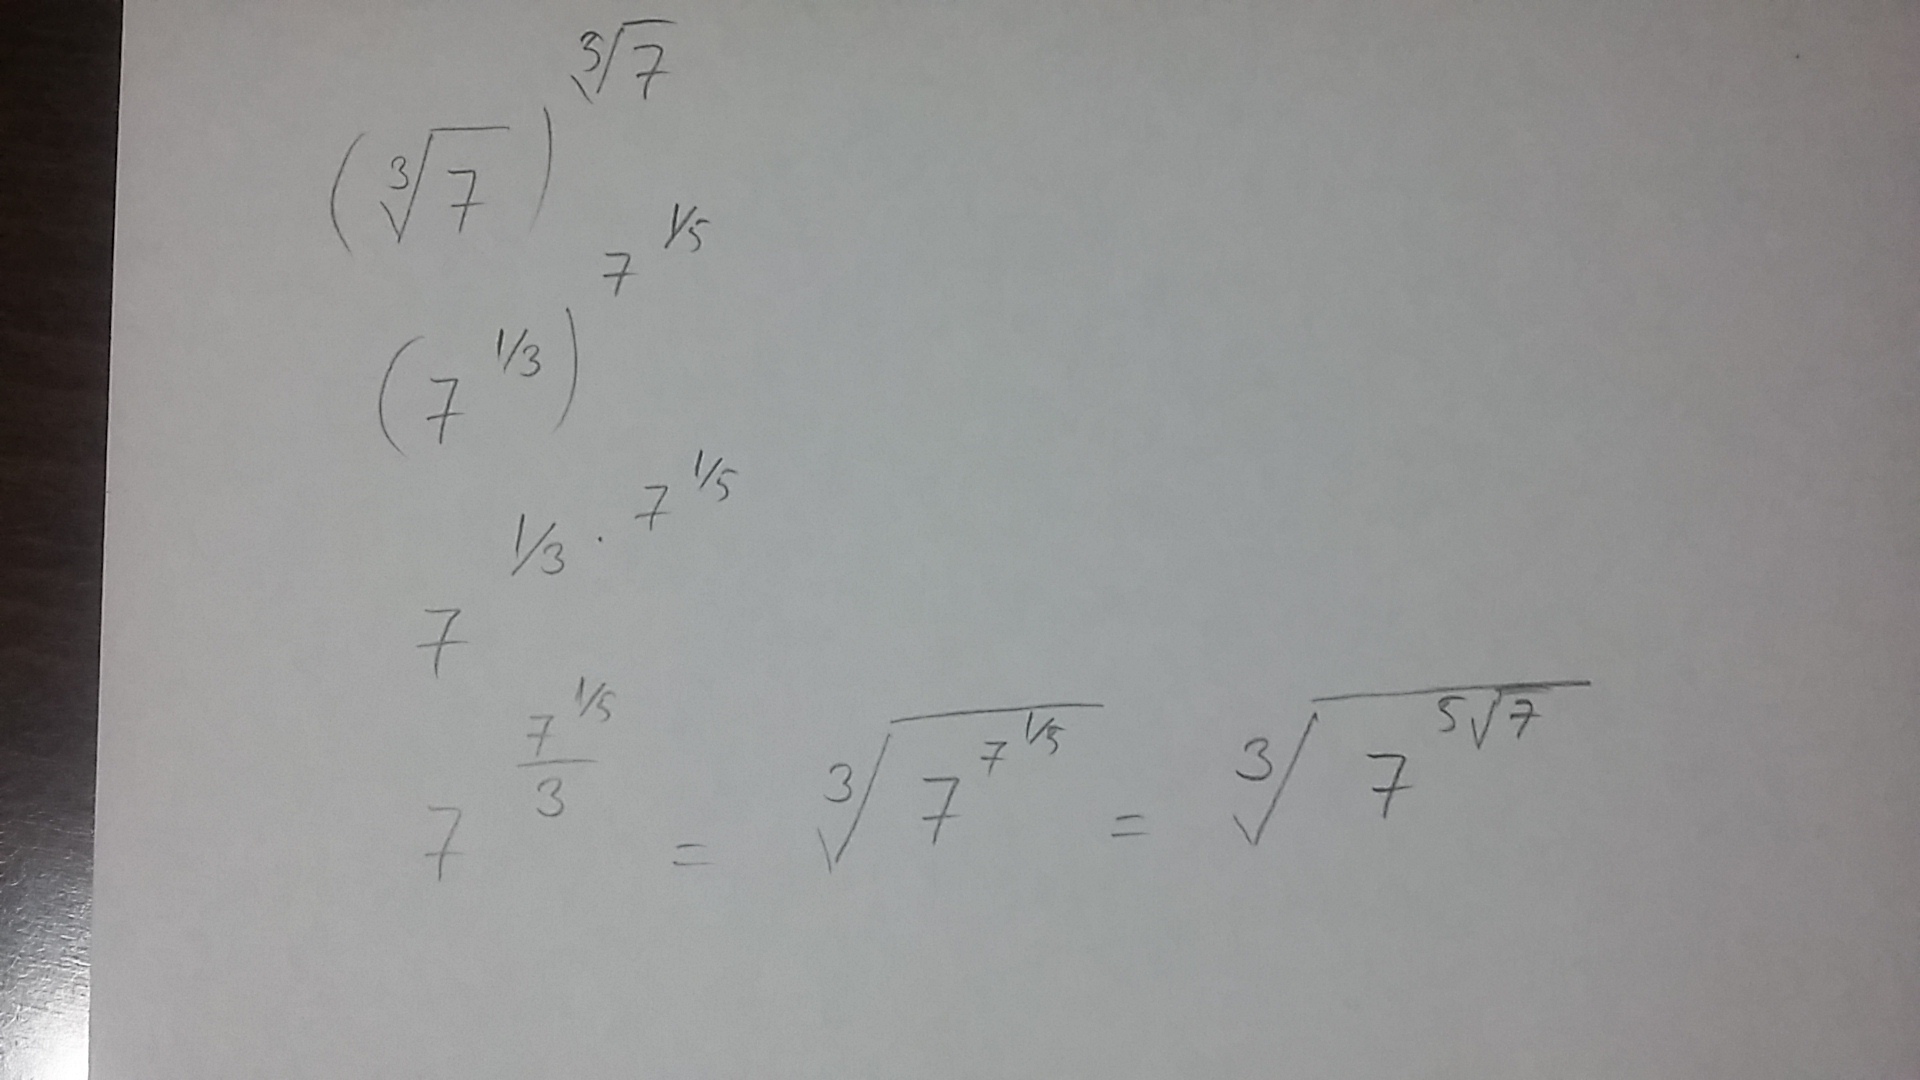 (∛7)^∛7
(7^1/3)^7^1/5
7^1/3 · 7^1/5
7^(7^1/5 / 3) = ∛(7^7^1/5) = ∛(7^⁵√7)